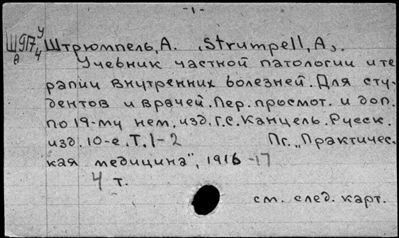 -1-
Щ917 У/4
в
Штрюмпель, А. (Strümpell, A).
Учебник частной патологии и те
рапии внутренних болезней. Для сту-
дентов и врачей. Пер. просмот. и доп.
по 19-му нем. изд. Г.С. Канцель. Русск.
изд. 10-е. Т. 1-2 Пг. „Практичес-
кая медицина", 1916-17
4 т.
см. след. карт.